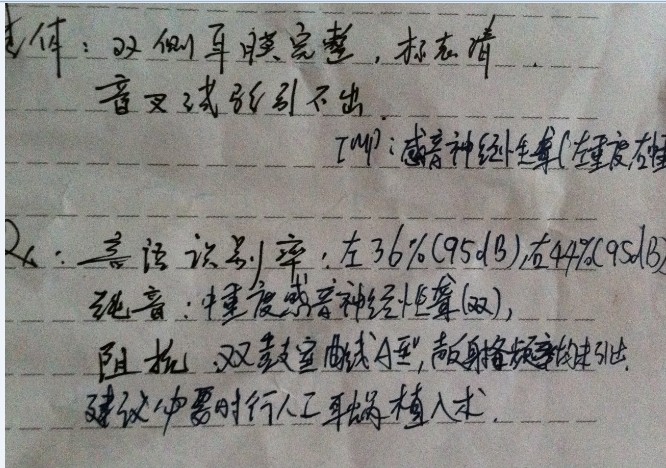 体：双侧耳膜完整，标志清.
音叉试验引不出.
Imp：感音神经性聋（左重度右
Rx：言语识别率：左36%(95dB),右44%(95dB)
纯音：中重度感音神经性聋(双),
阻抗 双鼓室曲线"A型",声反射各频率均未引出.
建议必要时行人工耳蜗植入术.